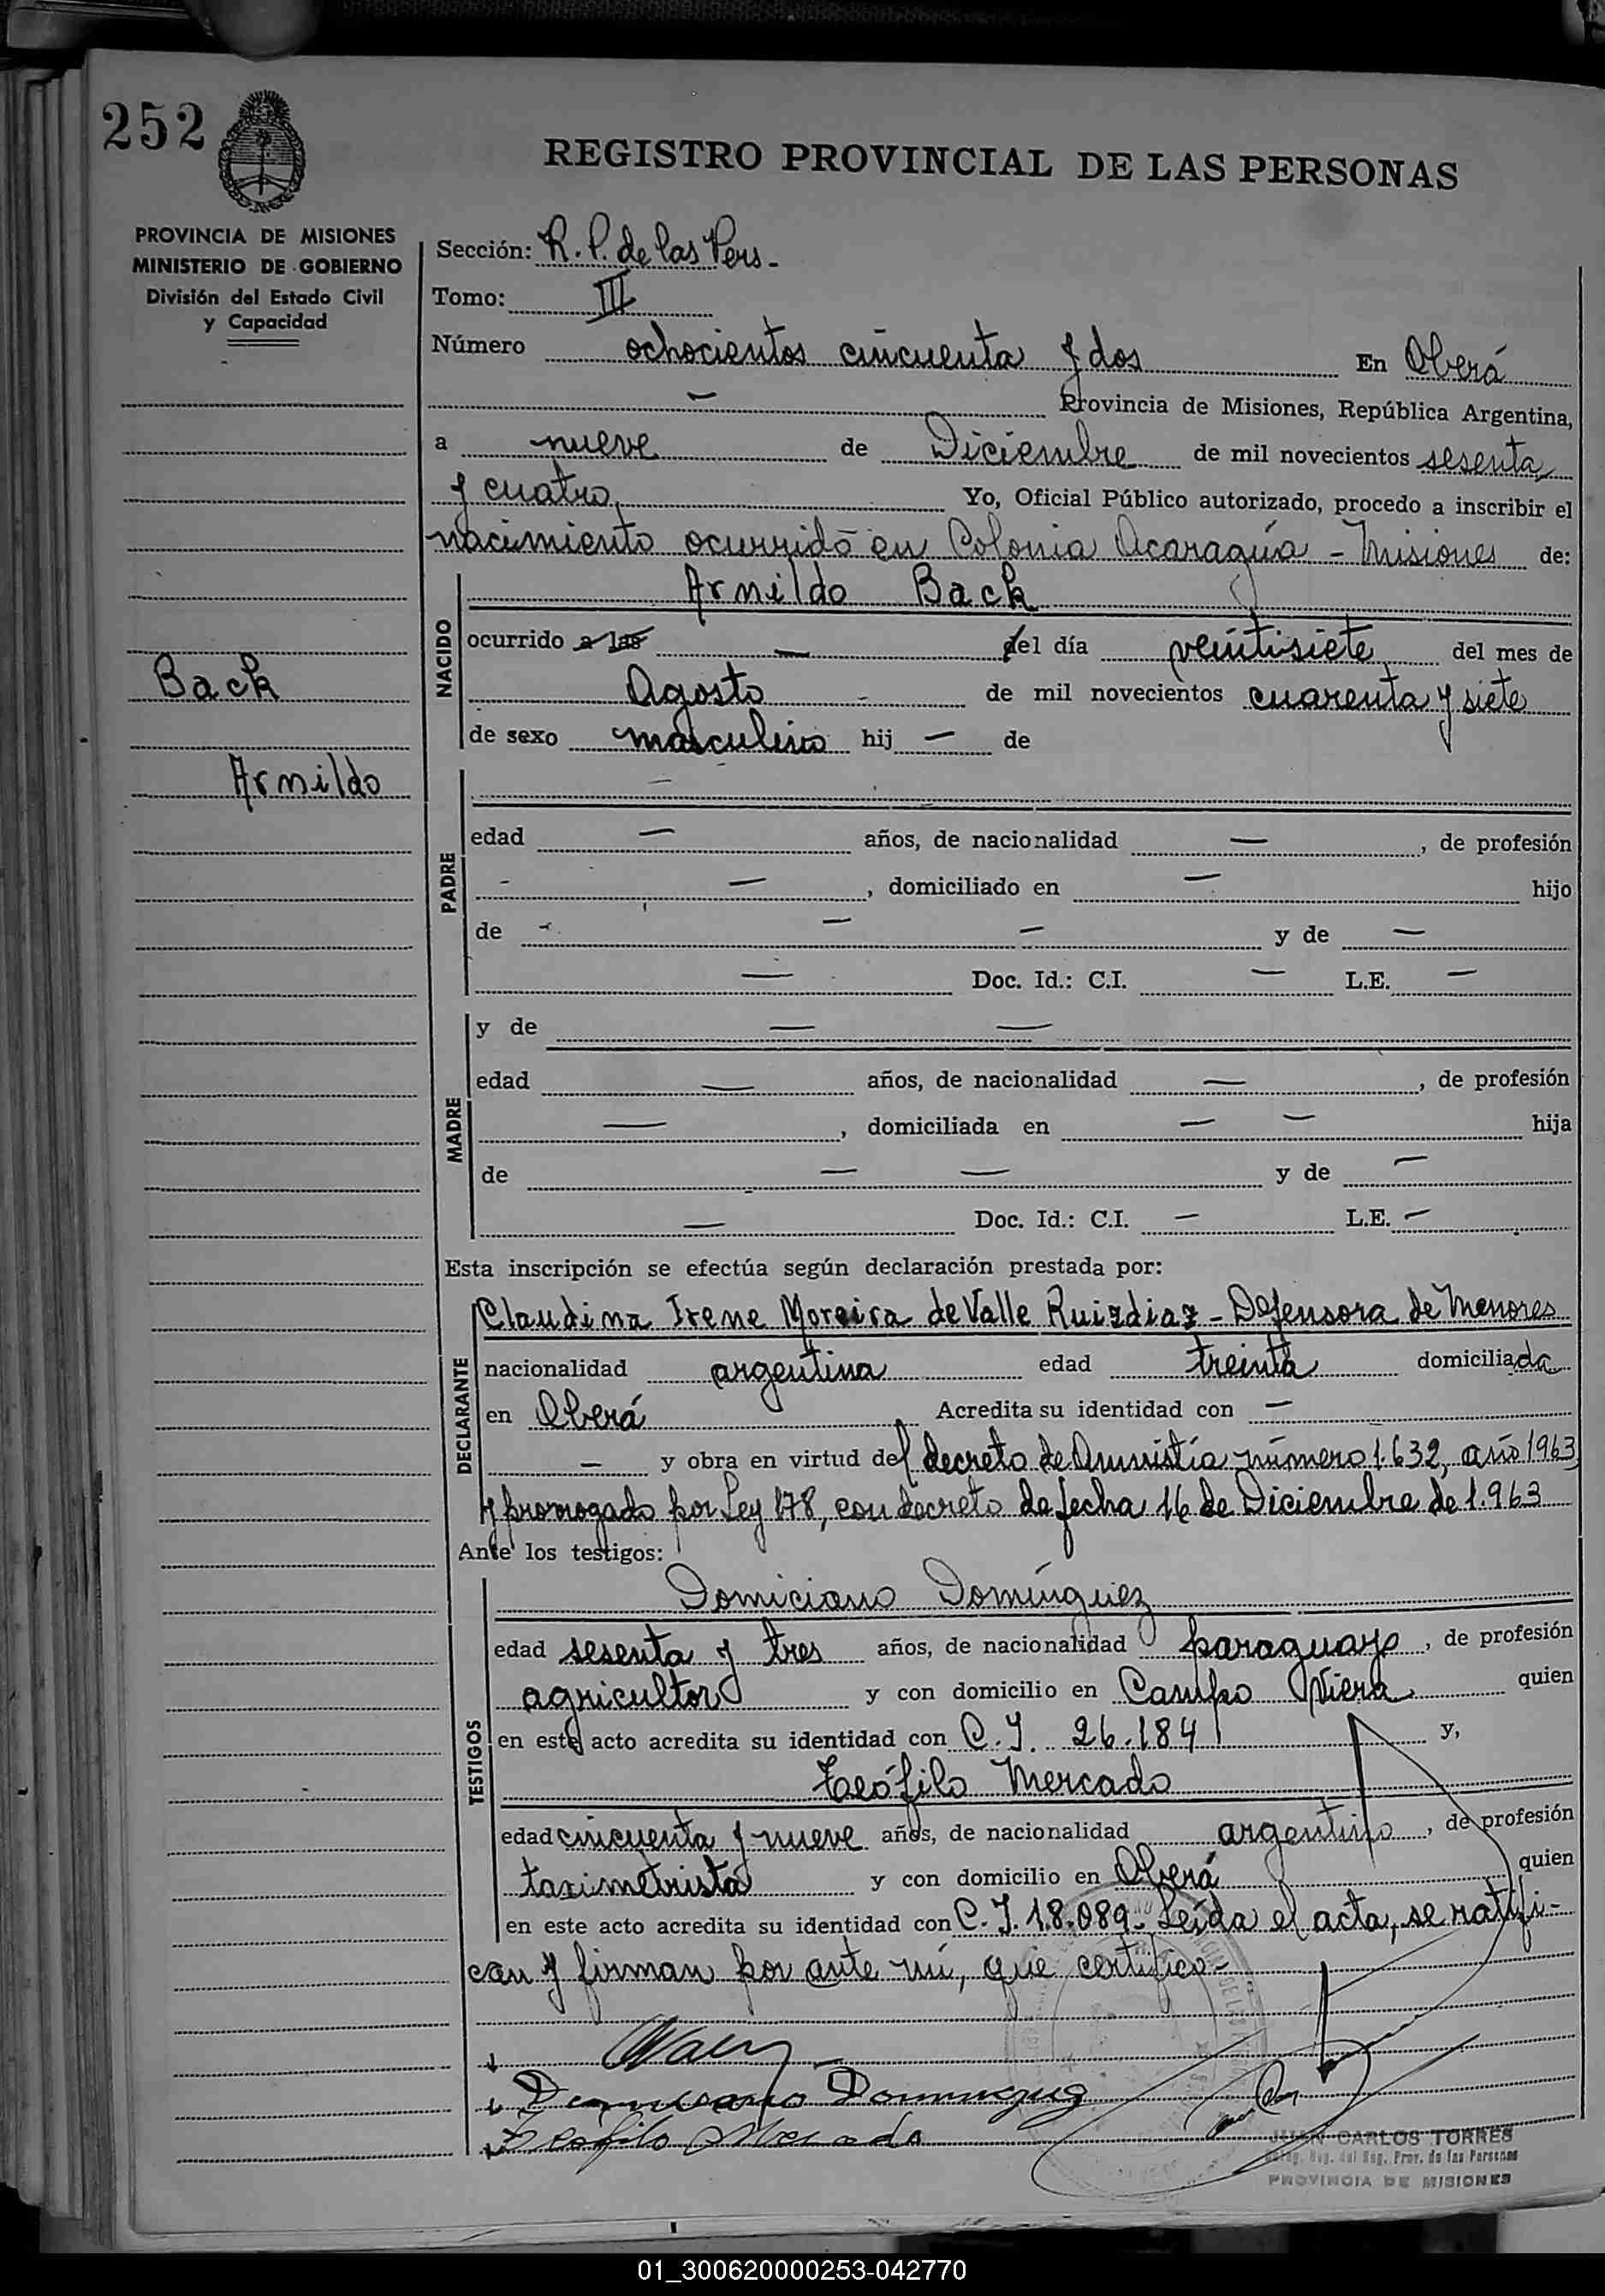 252
REGISTRO PROVINCIAL DE LAS PERSONAS
PROVINCIA DE MISIONES
MINISTERIO DE GOBIERNO
División del Estado Civil
y Capacidad
Sección: R. P. de las Pers -
Tomo: III
Número ochocientos cincuenta y dos En Oberá
— Provincia de Misiones, República Argentina,
a nueve de Diciembre de mil novecientos sesenta
y cuatro, Yo, Oficial Público autorizado, procedo a inscribir el
nacimiento ocurrido en Colonia Acaragua - Misiones de:
NACIDO
Arnildo Back
ocurrido a las — del día veintisiete del mes de
Back
Agosto de mil novecientos cuarenta y siete
de sexo masculino hij — de
Arnildo
PADRE
—
edad — años, de nacionalidad —, de profesión
- —, domiciliado en — hijo
de - — — y de —
— Doc. Id.: C.I. — L.E. —
MADRE
y de — —
edad — años, de nacionalidad —, de profesión
—, domiciliada en — — hija
de — — y de —
— Doc. Id.: C.I. — L.E. —
Esta inscripción se efectúa según declaración prestada por:
DECLARANTE
Claudina Irene Moreira de Valle Ruizdiaz - Defensora de Menores
nacionalidad argentina edad treinta domiciliada
en Oberá Acredita su identidad con —
— y obra en virtud del decreto de Amnistía número 1.632, año 1963
y prorrogado por Ley 178, con decreto de fecha 16 de Diciembre de 1.963
Ante los testigos:
TESTIGOS
Domiciano Domínguez
edad sesenta y tres años, de nacionalidad paraguayo, de profesión
agricultor y con domicilio en Campo Viera quien
en este acto acredita su identidad con C. I. 26.184 y,
Teófilo Mercado
edad cincuenta y nueve años, de nacionalidad argentino, de profesión
taximetrista y con domicilio en Oberá quien
en este acto acredita su identidad con C. I. 18.089 - Leída el acta, se ratifi-
can y firman por ante mí, que certifico -
Domiciano Dominguez
Teofilo Mercado
JUAN CARLOS TORRES
Reg. Prov. de las Personas
PROVINCIA DE MISIONES
01_300620000253-042770